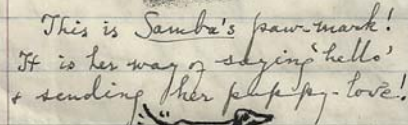 This is Samba's paw-mark!
It is her way of saying 'hello'
& sending her puppy-love!